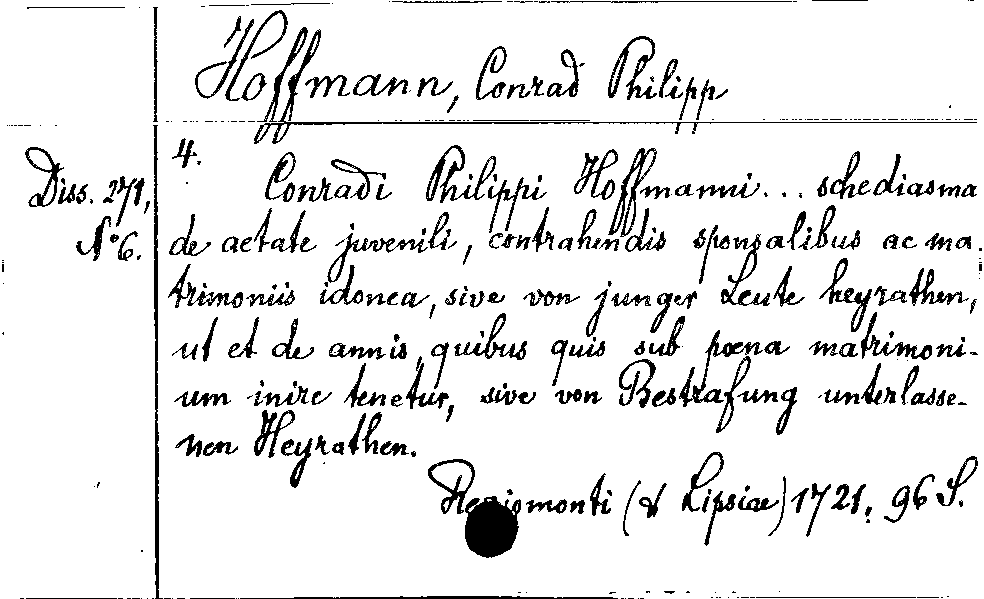 Hoffmann, Conrad Philipp
4.
Diss. 271,
No 6.
Conradi Philippi Hoffmanni... schediasma
de aetate juvenili, contrahendis sponsalibus ac ma-
trimoniis idonea, sive von junger Leute heyrathen,
ut et de annis, quibus quis sub poena matrimoni-
um inire tenetur, sive von Bestrafung unterlasse-
nen Heyrathen.
Regiomonti (& Lipsiae) 1721. 96 S.